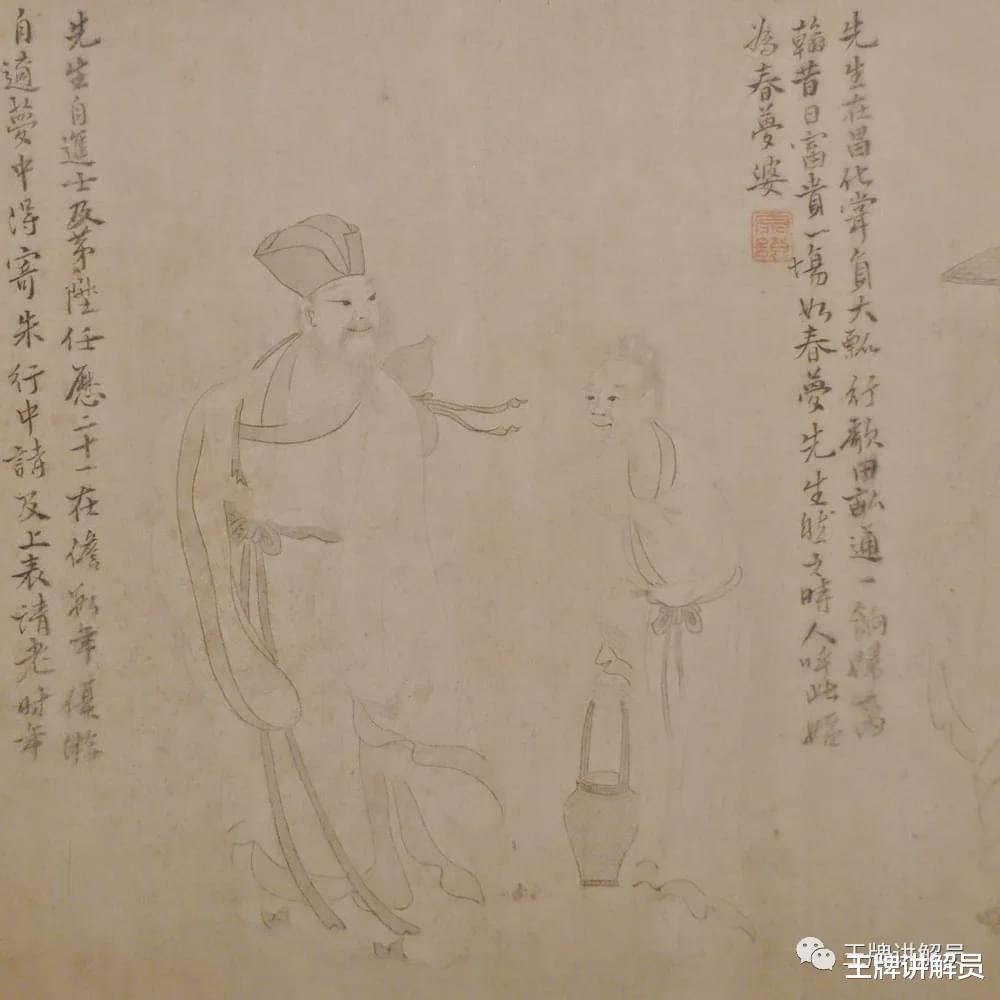 先生在昌化常負大瓢行歌田畝通一餉婦謂
翰昔日富貴一場如春夢先生然之時人呼此婦
為春夢婆
先生自進士及第陞任歷二十一在儋數年優游
自適夢中得寄朱行中詩及上表請老时年
王牌讲解员
王牌讲解员